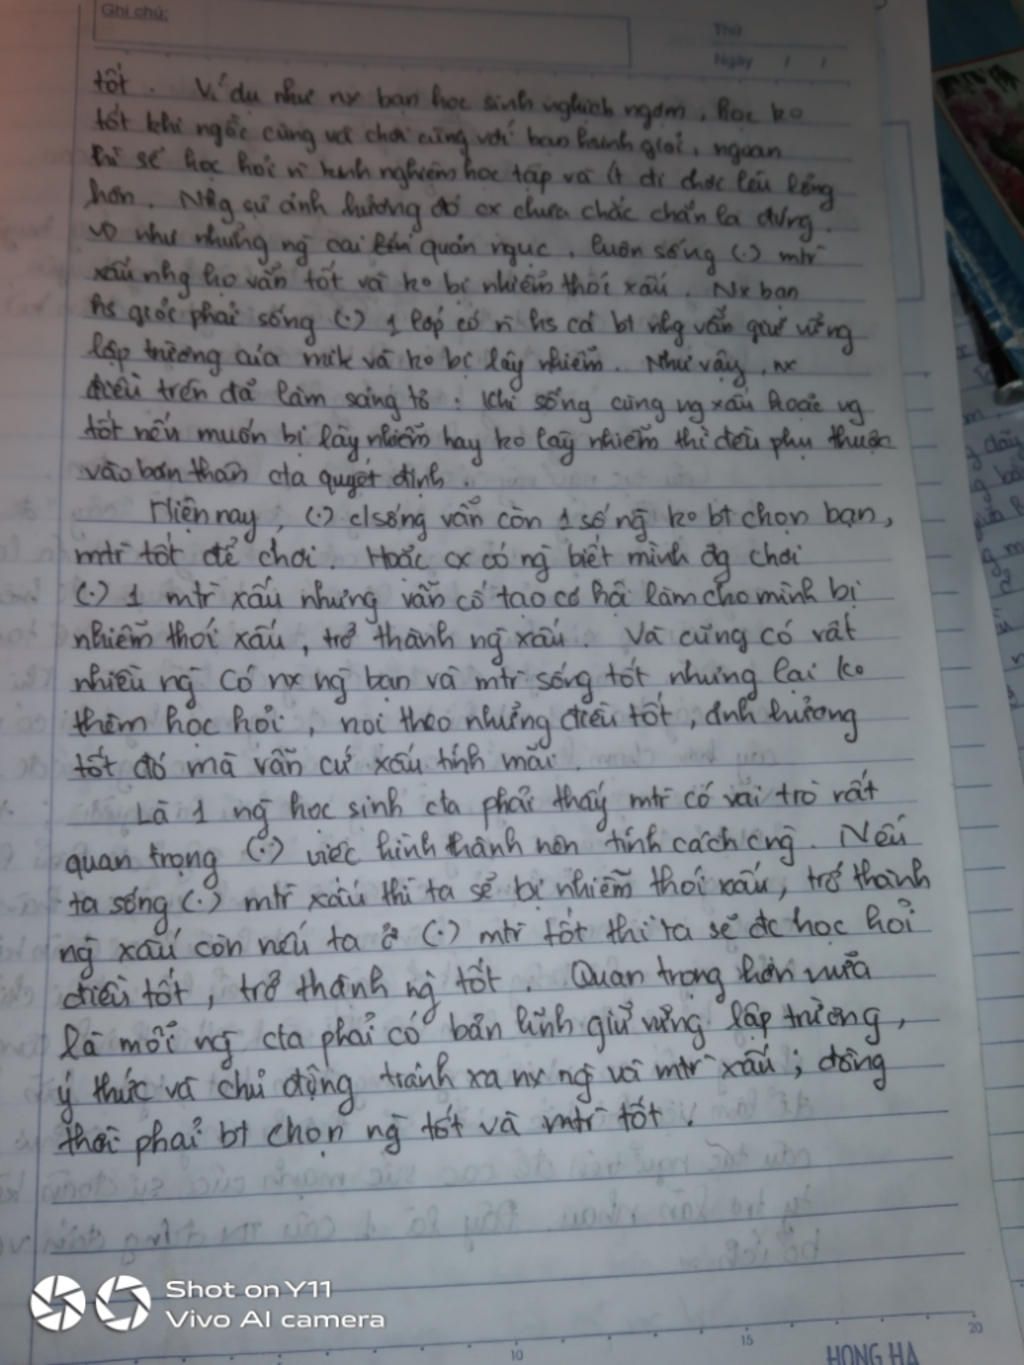 Ghi chú:
Thứ
Ngày / /
tốt. Ví dụ như nx bạn học sinh nghịch ngợm, học ko
tốt khi ngồi cùng với chơi cùng với bạn hsinh giỏi, ngoan
thì sẽ học hỏi n kinh nghiệm học tập và ít đi chơi lêu lổng
hơn. Nhg sự ảnh hưởng đó cx chưa chắc chắn là đúng.
như những ng cai quản ngục, luôn sống (.) mtr
xấu nhg họ vẫn tốt và ko bị nhiễm thói xấu. Nx bạn
hs giỏi phải sống (.) 1 lớp có n hs cá bt nhg vẫn giữ vững
lập trường của mik và ko bị lây nhiễm. Như vậy, nx
điều trên đã làm sáng tỏ: Khi sống cùng ng xấu hoặc ng
tốt nếu muốn bị lây nhiễm hay ko lây nhiễm thì đều phụ thuộc
vào bản thân cta quyết định.
Hiện nay, (.) c/sống vẫn còn 1 số ng ko bt chọn bạn,
mtr tốt để chơi. Hoặc cx có ng biết mình đg chơi
(.) 1 mtr xấu nhưng vẫn cố tạo cơ hội làm cho mình bị
nhiễm thói xấu, trở thành ng xấu. Và cũng có rất
nhiều ng có nx ng bạn và mtr sống tốt nhưng lại ko
thèm học hỏi, noi theo những điều tốt, ảnh hưởng
tốt đó mà vẫn cứ xấu tính mãi.
Là 1 ng học sinh cta phải thấy mtr có vai trò rất
quan trọng (.) việc hình thành nên tính cách cng. Nếu
ta sống (.) mtr xấu thì ta sẽ bị nhiễm thói xấu, trở thành
ng xấu còn nếu ta ở (.) mtr tốt thì ta sẽ đc học hỏi
điều tốt, trở thành ng tốt. Quan trọng hơn nữa
là mỗi ng cta phải có bản lĩnh giữ vững lập trường,
ý thức và chủ động tránh xa nx ng và mtr xấu; đồng
thời phải bt chọn ng tốt và mtr tốt.
Shot on Y11
Vivo AI camera
10 15 20
HONG HA